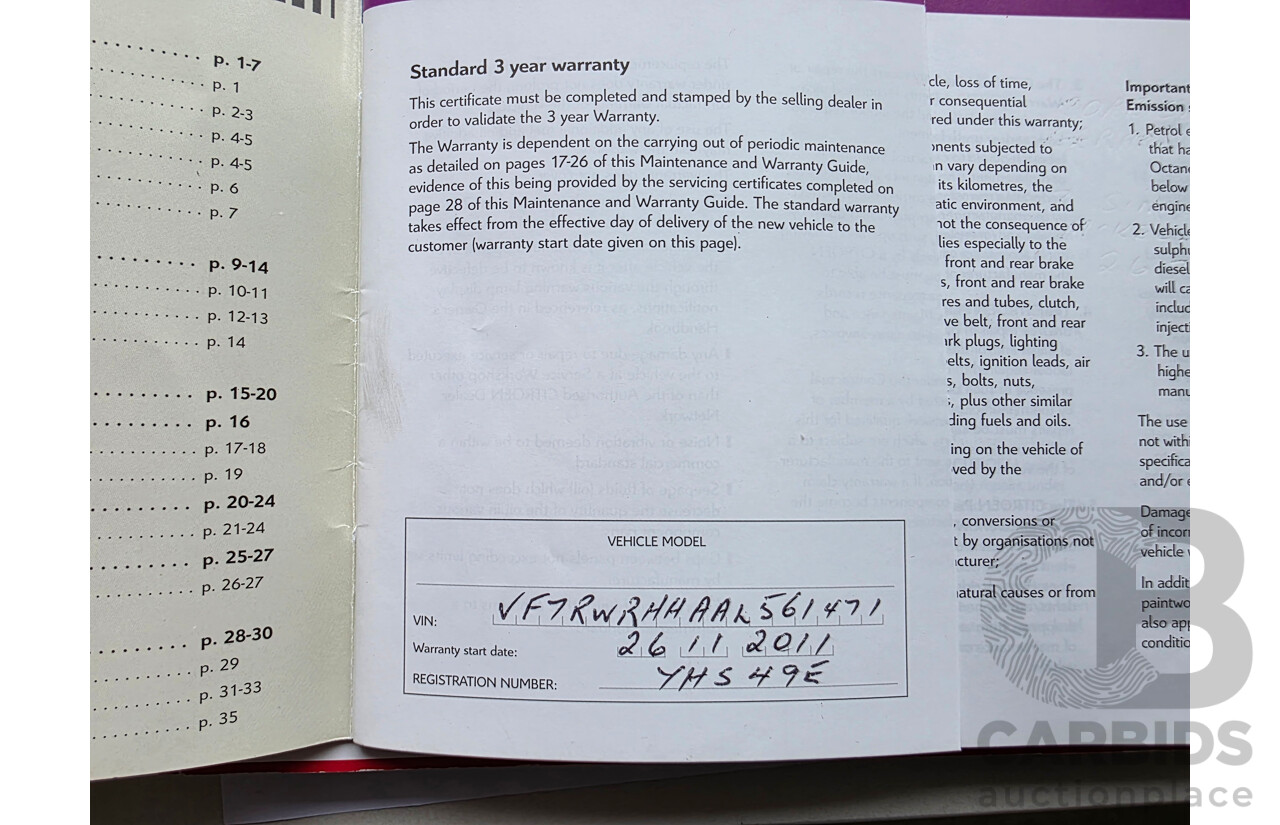 p. 1-7
p. 1
p. 2-3
p. 4-5
p. 4-5
p. 6
p. 7
p. 9-14
p. 10-11
p. 12-13
p. 14
p. 15-20
p. 16
p. 17-18
p. 19
p. 20-24
p. 21-24
p. 25-27
p. 26-27
p. 28-30
p. 29
p. 31-33
p. 35
Standard 3 year warranty
This certificate must be completed and stamped by the selling dealer in
order to validate the 3 year Warranty.
The Warranty is dependent on the carrying out of periodic maintenance
as detailed on pages 17-26 of this Maintenance and Warranty Guide,
evidence of this being provided by the servicing certificates completed on
page 28 of this Maintenance and Warranty Guide. The standard warranty
takes effect from the effective day of delivery of the new vehicle to the
customer (warranty start date given on this page).
VEHICLE MODEL
VIN: VF7RWRHHAAL561471
Warranty start date: 26 11 2011
REGISTRATION NUMBER: YHS 49E
cle, loss of time,
r consequential
red under this warranty;
nents subjected to
n vary depending on
its kilometres, the
atic environment, and
not the consequence of
lies especially to the
front and rear brake
s, front and rear brake
res and tubes, clutch,
ve belt, front and rear
rk plugs, lighting
elts, ignition leads, air
s, bolts, nuts,
, plus other similar
ding fuels and oils.
ing on the vehicle of
ved by the
, conversions or
t by organisations not
cturer;
natural causes or from
Important
Emission
1. Petrol e
that ha
Octan
below
engine
2. Vehicle
sulphu
diesel
will ca
includ
injecti
3. The u
highe
manu
The use
not withi
specifica
and/or e
Damage
of incorr
vehicle
In addit
paintwo
also app
conditio
CARBIDS
auctionplace